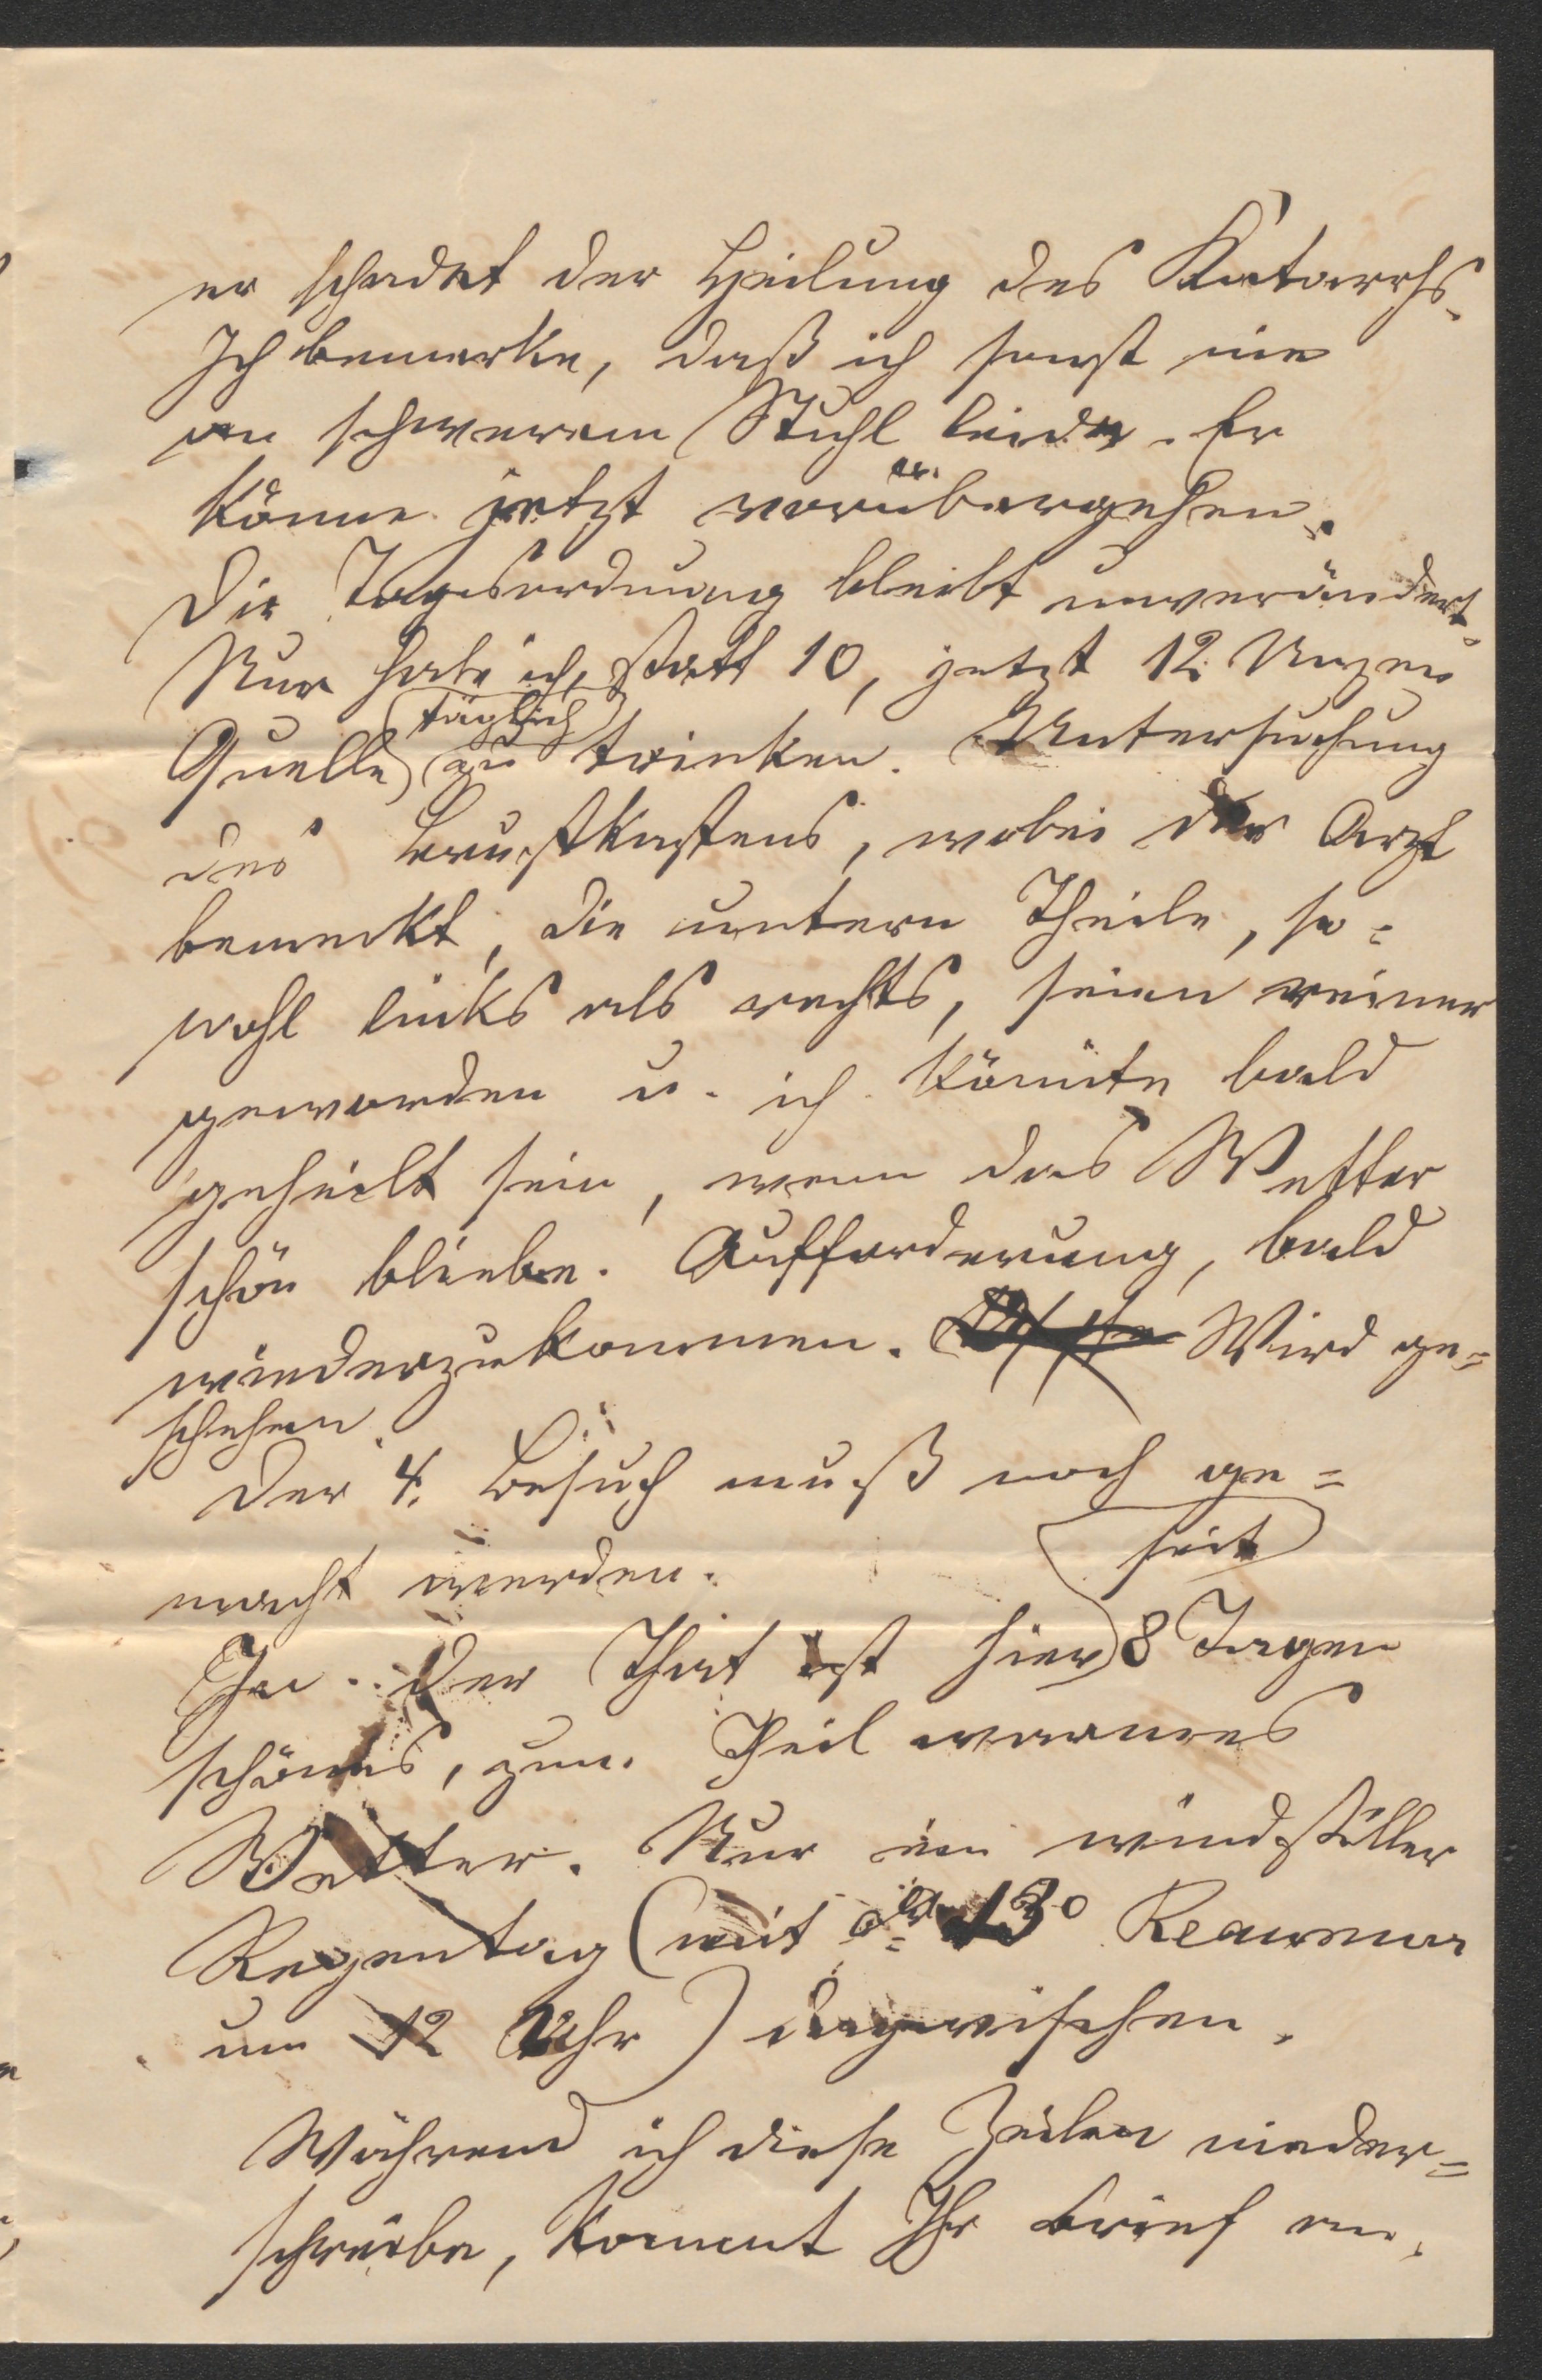 er schadet der Heilung des Katarrhs.
Ich bemerke, daß ich sonst nie
an schwerem Stuhl leide. Er
könne jetzt vorübergehen.
Die Tagesordnung bleibt unverändert.
Nur habe ich, statt 10, jetzt 12 Unzen
täglich
Quelle zu trinken. Untersuchung
des Brustkastens, wobei der Arzt
bemerkt, die untern Theile, so=
wohl links als rechts, seien reiner
geworden u. ich könnte bald
geheilt sein, wenn das Wetter
schön bliebe. Aufforderung, bald
wiederzukommen. Wird ge=
schehen.
Der 4. Besuch muß noch ge=
macht werden.
seit
In der That ist hier 8 Tagen
schönes, zum Theil warmes
Wetter. Nur ein windstiller
Regentag (mit 13° Reaumur
um 12 Uhr) dazwischen.
Während ich diese Zeilen nieder=
schreibe, kommt Ihr Brief an.